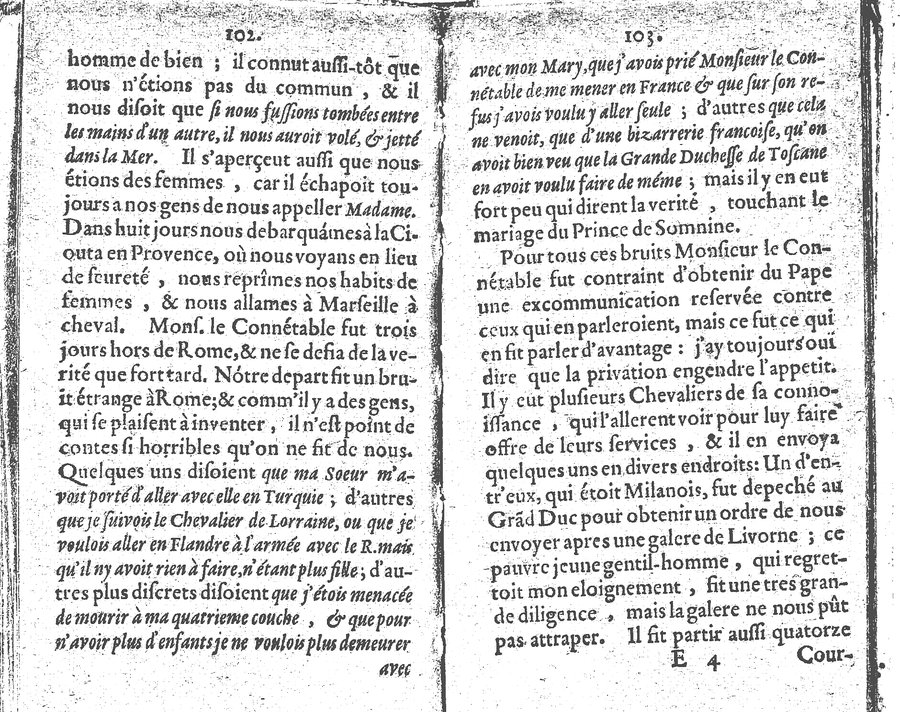 102.
homme de bien ; il connut aussi-tôt que
nous n'étions pas du commun , & il
nous disoit que si nous fussions tombées entre
les mains d'un autre, il nous auroit volé, & jetté
dans la Mer. Il s'aperçeut aussi que nous
étions des femmes , car il échapoit tou-
jours a nos gens de nous appeller Madame.
Dans huit jours nous debarquámes à la Ci-
outa en Provence, où nous voyans en lieu
de seureté , nous reprîmes nos habits de
femmes , & nous allames à Marseille à
cheval. Mons. le Connétable fut trois
jours hors de Rome, & ne se defia de la ve-
rité que fort tard. Nótre depart fit un bru-
it étrange à Rome; & comm'il y a des gens,
qui se plaisent à inventer , il n'est point de
contes si horribles qu'on ne fit de nous.
Quelques uns disoient que ma Soeur m'a-
voit porté d'aller avec elle en Turquie ; d'autres
que je suivois le Chevalier de Lorraine, ou que je
voulois aller en Flandre à l'armée avec le R. mais
qu'il ny avoit rien à faire, n'étant plus fille ; d'au-
tres plus discrets disoient que j'étois menacée
de mourir à ma quatrieme couche , & que pour
n'avoir plus d'enfants je ne voulois plus demeurer
avec
103.
avec mon Mary, que j'avois prié Monsieur le Con-
nétable de me mener en France & que sur son re-
fus j'avois voulu y aller seule ; d'autres que cela
ne venoit, que d'une bizarrerie francoise, qu'on
avoit bien veu que la Grande Duchesse de Toscane
en avoit voulu faire de méme ; mais il y en eut
fort peu qui dirent la verité , touchant le
mariage du Prince de Somnine.
Pour tous ces bruits Monsieur le Con-
nétable fut contraint d'obtenir du Pape
une excommunication reservée contre
ceux qui en parleroient, mais ce fut ce qui
en fit parler d'avantage : j'ay toujours oui
dire que la privation engendre l'appetit.
Il y eut plusieurs Chevaliers de sa conno-
issance , qui l'allerent voir pour luy faire
offre de leurs services , & il en envoya
quelques uns en divers endroits: Un d'en-
tr'eux, qui étoit Milanois, fut depeché au
Grãd Duc pour obtenir un ordre de nous
envoyer apres une galere de Livorne ; ce
pauvre jeune gentil-homme , qui regret-
toit mon eloignement , fit une tres gran-
de diligence , mais la galere ne nous pût
pas attraper. Il fit partir aussi quatorze
E 4 Cour-